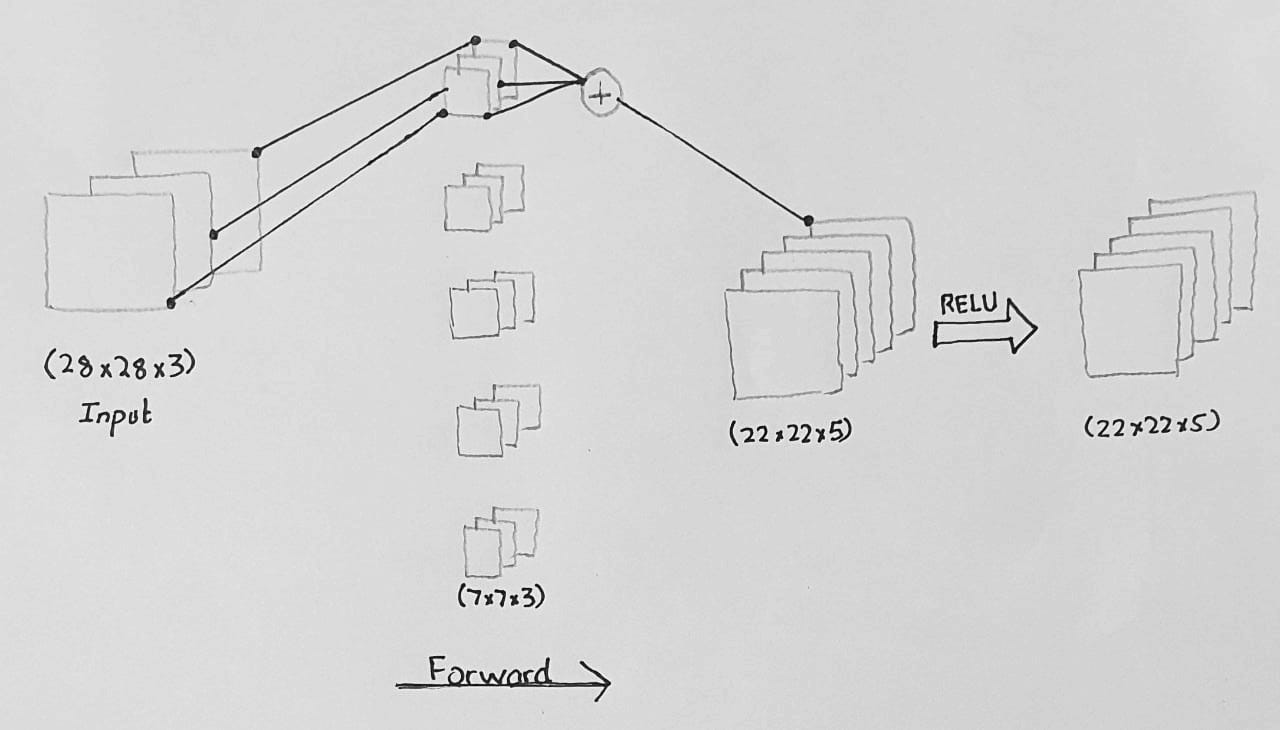 (28x28x3)
Input
+
(7x7x3)
(22x22x5)
RELU
(22x22x5)
Forward